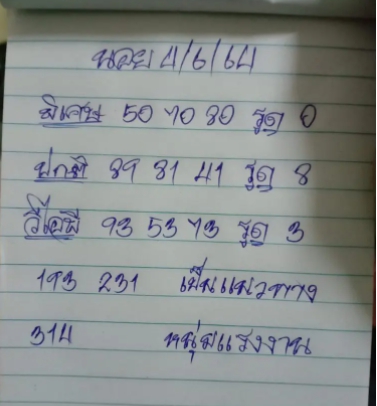 นอย 4/6/64
พิเศษ 50 70 80 รูด 0
ปกติ 89 81 41 รูด 8
วีไอพี 93 53 73 รูด 3
193 231 เป็นแนวทาง
314 หนุ่มแรงงาน